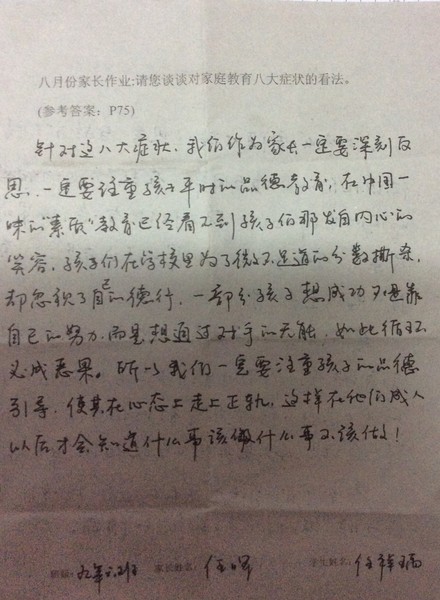 八月份家长作业:请您谈谈对家庭教育八大症状的看法。
(参考答案：P75)
针对这八大症状，我们作为家长一定要深刻反
思，一定要注重孩子平时的品德教育，在中国一
味的"素质"教育已经看不到孩子们那发自内心的
笑容，孩子们在学校里为了微不足道的分数撕杀，
却忽视了自己的德行，一部分孩子想成功不是靠
自己的努力而是想通过对手的无能，如此循环
必成恶果。所以我们一定要注重孩子的品德
引导，使其在心态上走上正轨，这样在他们成人
以后才会知道什么事该做什么事不该做！
班级：九年六班 家长姓名：任晖 学生姓名：任禅瑀